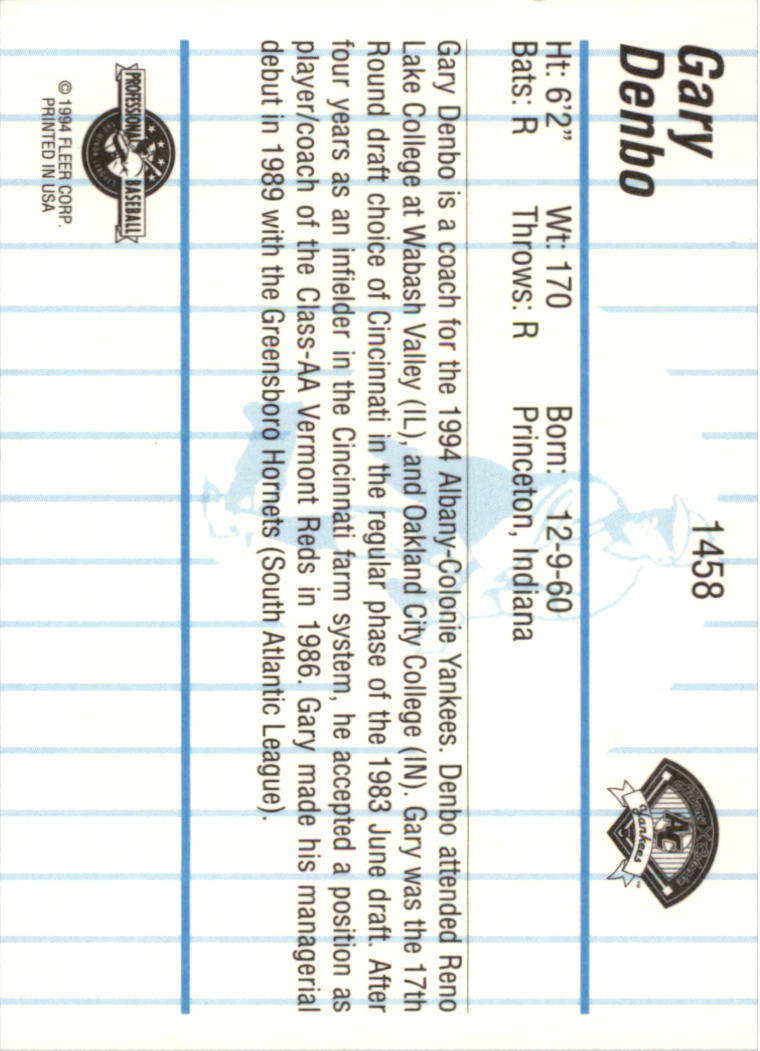 Gary
Denbo
1458
Albany Colonie
AC
Yankees
™
Ht: 6'2" Wt: 170 Born: 12-9-60
Bats: R Throws: R Princeton, Indiana
Gary Denbo is a coach for the 1994 Albany-Colonie Yankees. Denbo attended Reno
Lake College at Wabash Valley (IL), and Oakland City College (IN). Gary was the 17th
Round draft choice of Cincinnati in the regular phase of the 1983 June draft. After
four years as an infielder in the Cincinnati farm system, he accepted a position as
player/coach of the Class-AA Vermont Reds in 1986. Gary made his managerial
debut in 1989 with the Greensboro Hornets (South Atlantic League).
PROFESSIONAL BASEBALL
© 1994 FLEER CORP.
PRINTED IN USA